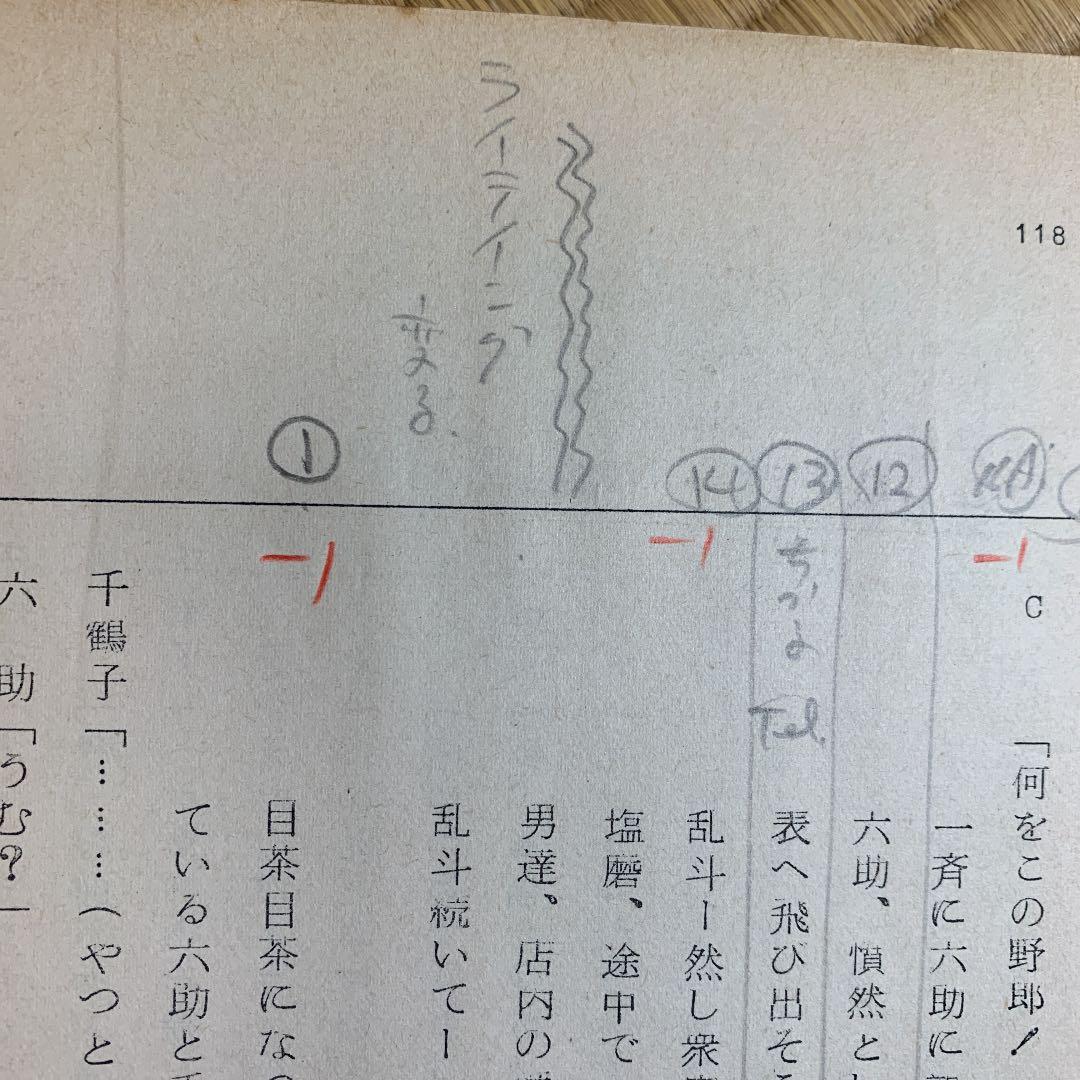 118
C
「何をこの野郎!
一斉に六助に
六助、憤然と
表へ飛び出そ
乱斗ー然し衆
塩磨、途中で
男達。店内の
乱斗続いてー
目茶目茶にな
ている六助と
千鶴子「………(やつと
六助「うむ?ー
12
13
14
Tel.
ライティング
変る.
1
-1
-1
-1